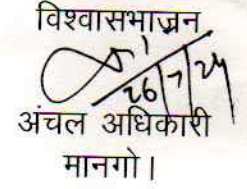 विश्वासभाजन
26/7/24
अंचल अधिकारी
मानगो।